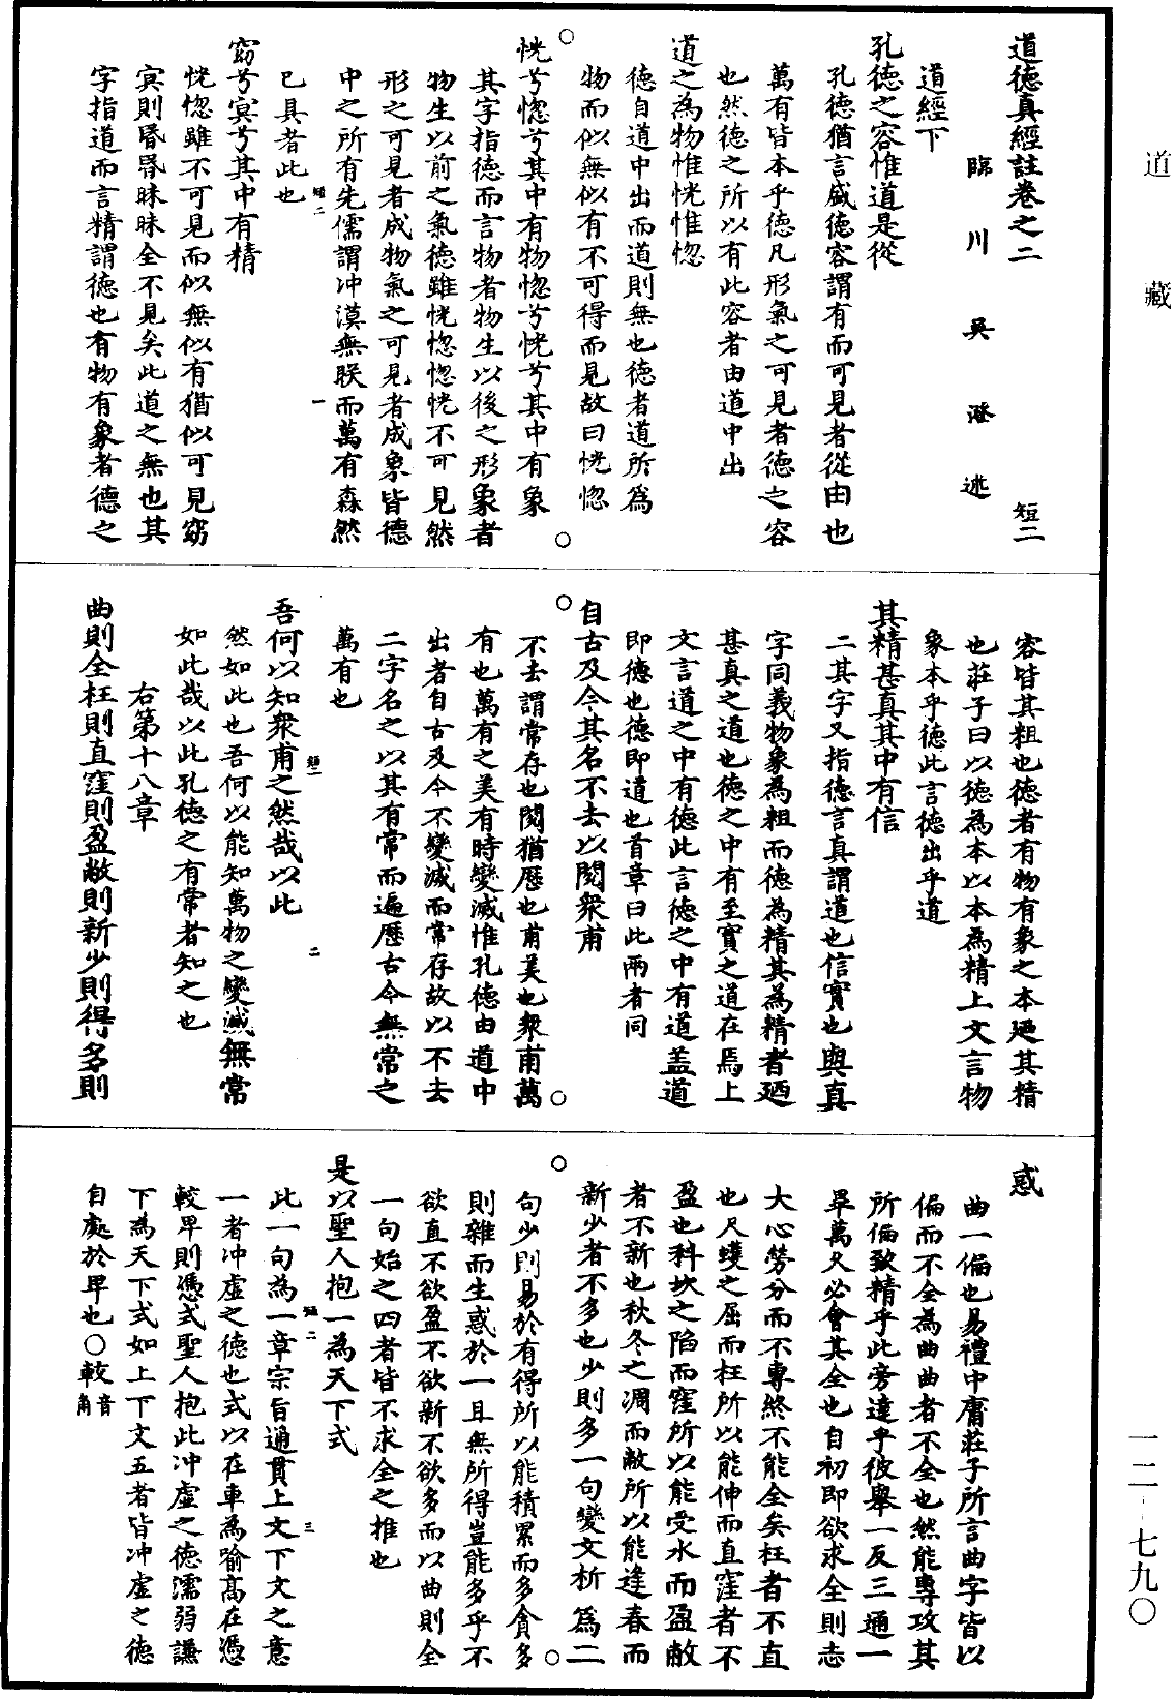 道德真經註卷之二 短二
臨川吳澄述
道經下
孔德之容惟道是從
孔德猶言盛德容謂有而可見者從由也
萬有皆本乎德凡形氣之可見者德之容
也然德之所以有此容者由道中出
道之為物惟恍惟惚
德自道中出而道則無也德者道所為
物而似無似有不可得而見故曰恍惚
恍兮惚兮其中有物惚兮恍兮其中有象
其字指德而言物者物生以後之形象者
物生以前之氣德雖恍惚惚恍不可見然
形之可見者成物氣之可見者成象皆德
中之所有先儒謂沖漠無朕而萬有森然
已具者此也
短二 一
窈兮冥兮其中有精
恍惚雖不可見而似無似有猶似可見窈
冥則昏昏昧昧全不見矣此道之無也其
字指道而言精謂德也有物有象者德之
容皆其粗也德者有物有象之本廼其精
也莊子曰以德為本以本為精上文言物
象本乎德此言德出乎道
其精甚真其中有信
二其字又指德言真謂道也信實也與真
字同義物象為粗而德為精其為精者廼
甚真之道也德之中有至實之道在焉上
文言道之中有德此言德之中有道蓋道
即德也德即道也首章曰此兩者同
自古及今其名不去以閱衆甫
不去謂常存也閱猶歷也甫美也衆甫萬
有也萬有之美有時變滅惟孔德由道中
出者自古及今不變滅而常存故以不去
二字名之以其有常而遍歷古今無常之
萬有也
短二 二
吾何以知衆甫之然哉以此
然如此也吾何以能知萬物之變滅無常
如此哉以此孔德之有常者知之也
右第十八章
曲則全枉則直窪則盈敝則新少則得多則
惑
曲一偏也易禮中庸莊子所言曲字皆以
偏而不全為曲曲者不全也然能專攻其
所偏致精乎此旁達乎彼舉一反三通一
畢萬又必會其全也自初即欲求全則志
大心勞分而不專終不能全矣枉者不直
也尺蠖之屈而枉所以能伸而直窪者不
盈也科坎之陷而窪所以能受水而盈敝
者不新也秋冬之凋而敝所以能逢春而
新少者不多也少則多一句變文析為二
句少則易於有得所以能積累而多貪多
則雜而生惑於一且無所得豈能多乎不
欲直不欲盈不欲新不欲多而以曲則全
一句始之四者皆不求全之推也
是以聖人抱一為天下式
短二 三
此一句為一章宗旨通貫上文下文之意
一者沖虛之德也式以在車為喻高在憑
較卑則憑式聖人抱此沖虛之德濡弱謙
下為天下式如上下文五者皆沖虛之德
自處於卑也○較音角
道藏
一二—七九〇